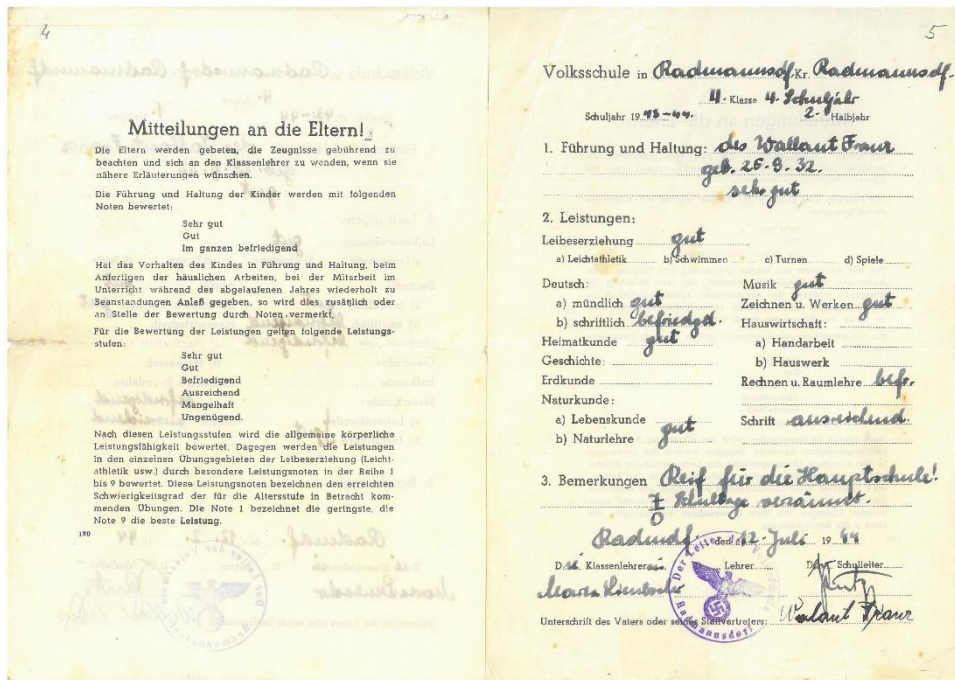 4
Mitteilungen an die Eltern!
Die Eltern werden gebeten, die Zeugnisse gebührend zu
beachten und sich an den Klassenlehrer zu wenden, wenn sie
nähere Erläuterungen wünschen.
Die Führung und Haltung der Kinder werden mit folgenden
Noten bewertet:
Sehr gut
Gut
Im ganzen befriedigend
Hat das Vorhalten des Kindes in Führung und Haltung, beim
Anfertigen der häuslichen Arbeiten, bei der Mitarbeit im
Unterricht während des abgelaufenen Jahres wiederholt zu
Beanstandungen Anlaß gegeben, so wird dies zusätzlich oder
an Stelle der Bewertung durch Noten vermerkt.
Für die Bewertung der Leistungen gelten folgende Leistungs-
stufen:
Sehr gut
Gut
Befriedigend
Ausreichend
Mangelhaft
Ungenügend.
Nach diesen Leistungsstufen wird die allgemeine körperliche
Leistungsfähigkeit bewertet. Dagegen werden die Leistungen
in den einzelnen Übungsgebieten der Leibeserziehung (Leicht-
athletik usw.) durch besondere Leistungsnoten in der Reihe 1
bis 9 bewertet. Diese Leistungsnoten bezeichnen den erreichten
Schwierigkeitsgrad der für die Altersstufe in Betracht kom-
menden Übungen. Die Note 1 bezeichnet die geringste, die
Note 9 die beste Leistung.
180
5
Volksschule in Radmannsdf. Kr. Radmannsdf.
4. Klasse 4. Schuljahr
Schuljahr 1943-44. 2. Halbjahr
1. Führung und Haltung: des Wallant Franz
geb. 26.9.32.
sehr gut
2. Leistungen:
Leibeserziehung gut
a) Leichtathletik b) Schwimmen c) Turnen d) Spiele
Deutsch: Musik gut
a) mündlich gut Zeichnen u. Werken gut
b) schriftlich befriedgd. Hauswirtschaft:
Heimatkunde gut a) Handarbeit
Geschichte: b) Hauswerk
Erdkunde Rechnen u. Raumlehre befr.
Naturkunde:
a) Lebenskunde gut Schrift ausreichend
b) Naturlehre
3. Bemerkungen Reif für die Hauptschule!
7 Schultage versäumt.
0
Radmdf. den 12. Juli 1944
Die Klassenlehrerin Lehrer Der Schulleiter
Maria
Der Leiter der
Radmannsdorf
Unterschrift des Vaters oder seines Stellvertreters: Wallant Franz